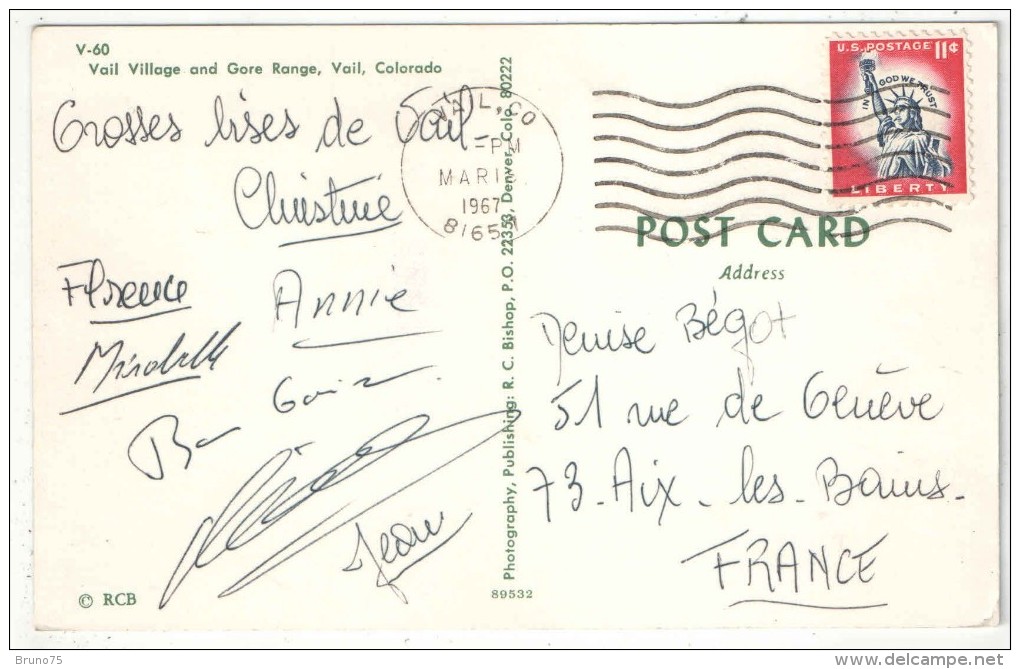 V-60
Vail Village and Gore Range, Vail, Colorado
Grosses bises de Vail
Christine
Florence
Annie
Mirabelle
Jean
© RCB
Photography, Publishing: R. C. Bishop, P.O. 22353, Denver, Colo. 80222
89532
VAIL, CO
PM
MAR
1967
81657
U.S. POSTAGE 11¢
IN GOD WE TRUST
LIBERTY
POST CARD
Address
Denise Bégot
51 rue de Genève
73-Aix-les-Bains-
FRANCE
Bruno75
delcampe.net